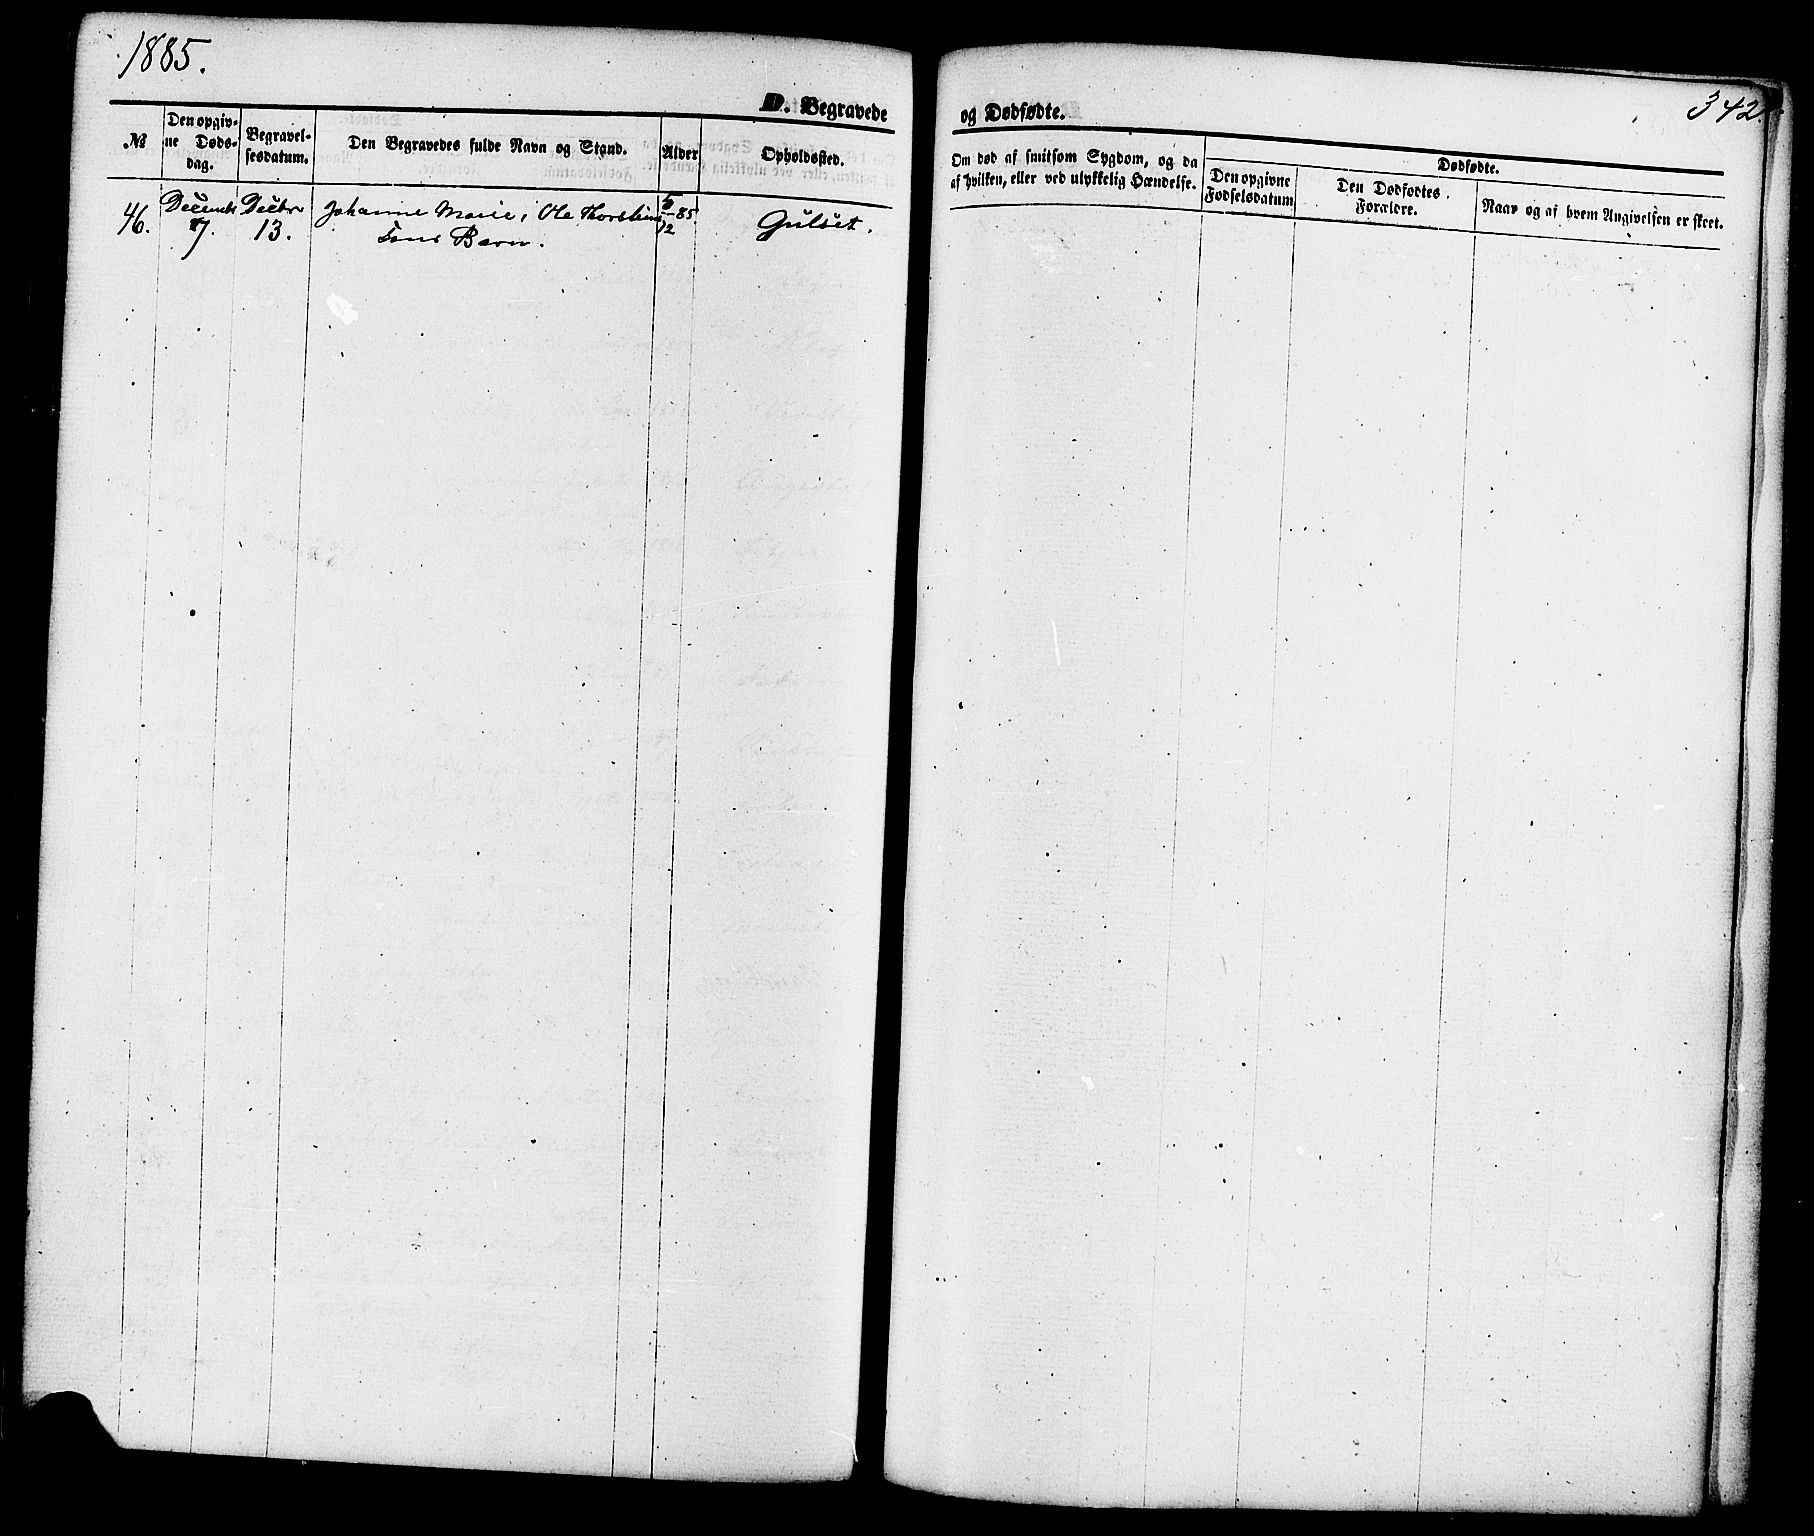 1885.
342.
D. Begravede
og Dødfødte.
№
Den opgiv-
ne Døds-
dag.
Begravel-
sesdatum.
Den Begravedes fulde Navn og Stand.
Alder
Opholdssted.
Om død af smitsom Sygdom, og da
af hvilken, eller ved ulykkelig Hændelse.
Dødfødte.
Den opgivne
Fødselsdatum
Den Dødfødtes
Forældre.
Naar og af hvem Angivelsen er skeet.
46.
Decemb
7.
Decbr
13.
Johanne Marie, Ole Thorstein
sens Barn.
5/12 85
Gulset.